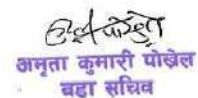 अमृता कुमारी पोखरेल
वडा सचिव